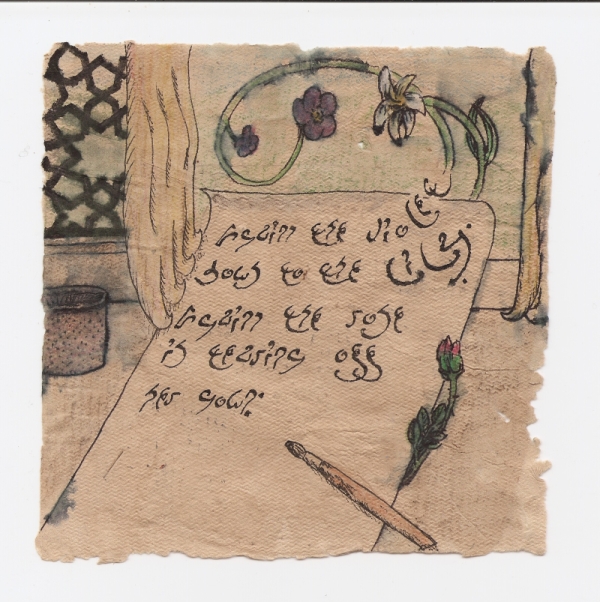 Again the violet
bows to the
Again the rose
is tearing off
her gown!